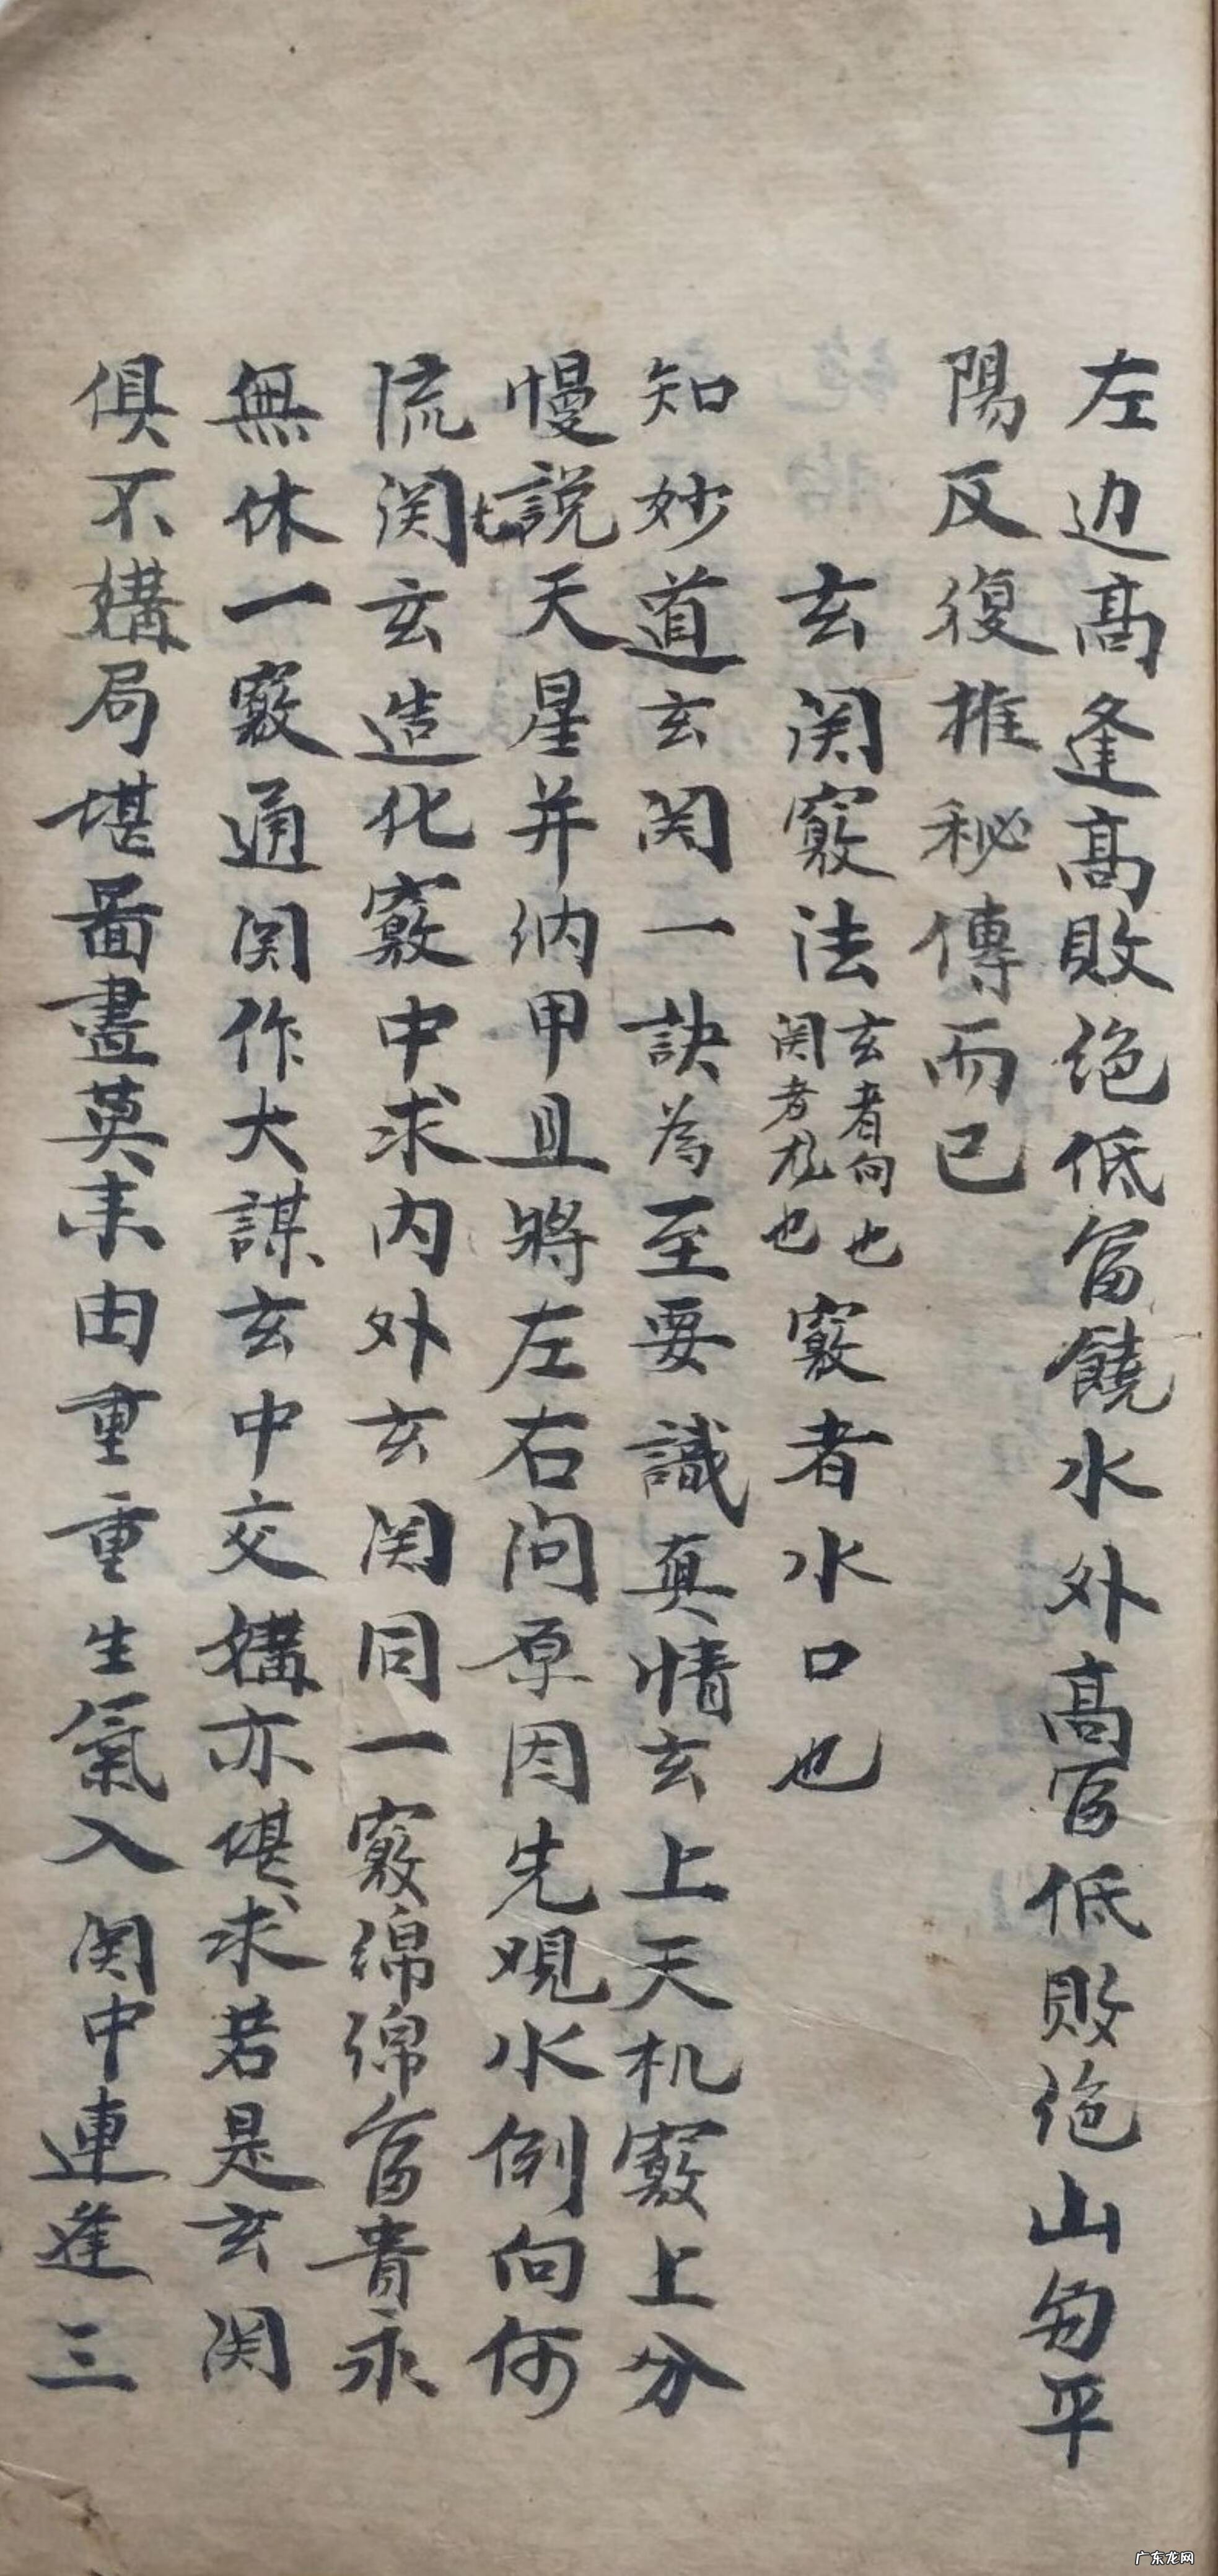 左边髙逢髙敗绝低富饒水外髙富低败绝山勻平
陽反復推秘傳而已
玄関竅法玄者向也関者龙也竅者水口也
知妙道玄関一訣為至要識真情玄上天机竅上分
慢説天星并纳甲且將左右问原因先观水倒向何
流関也玄造化竅中求内外玄関同一竅绵绵富貴永
無休一竅通関作大謀玄中交媾亦堪求若是玄関
俱不媾局堪啚畫莫来由重重生氣入関中連逢三
广东龙网